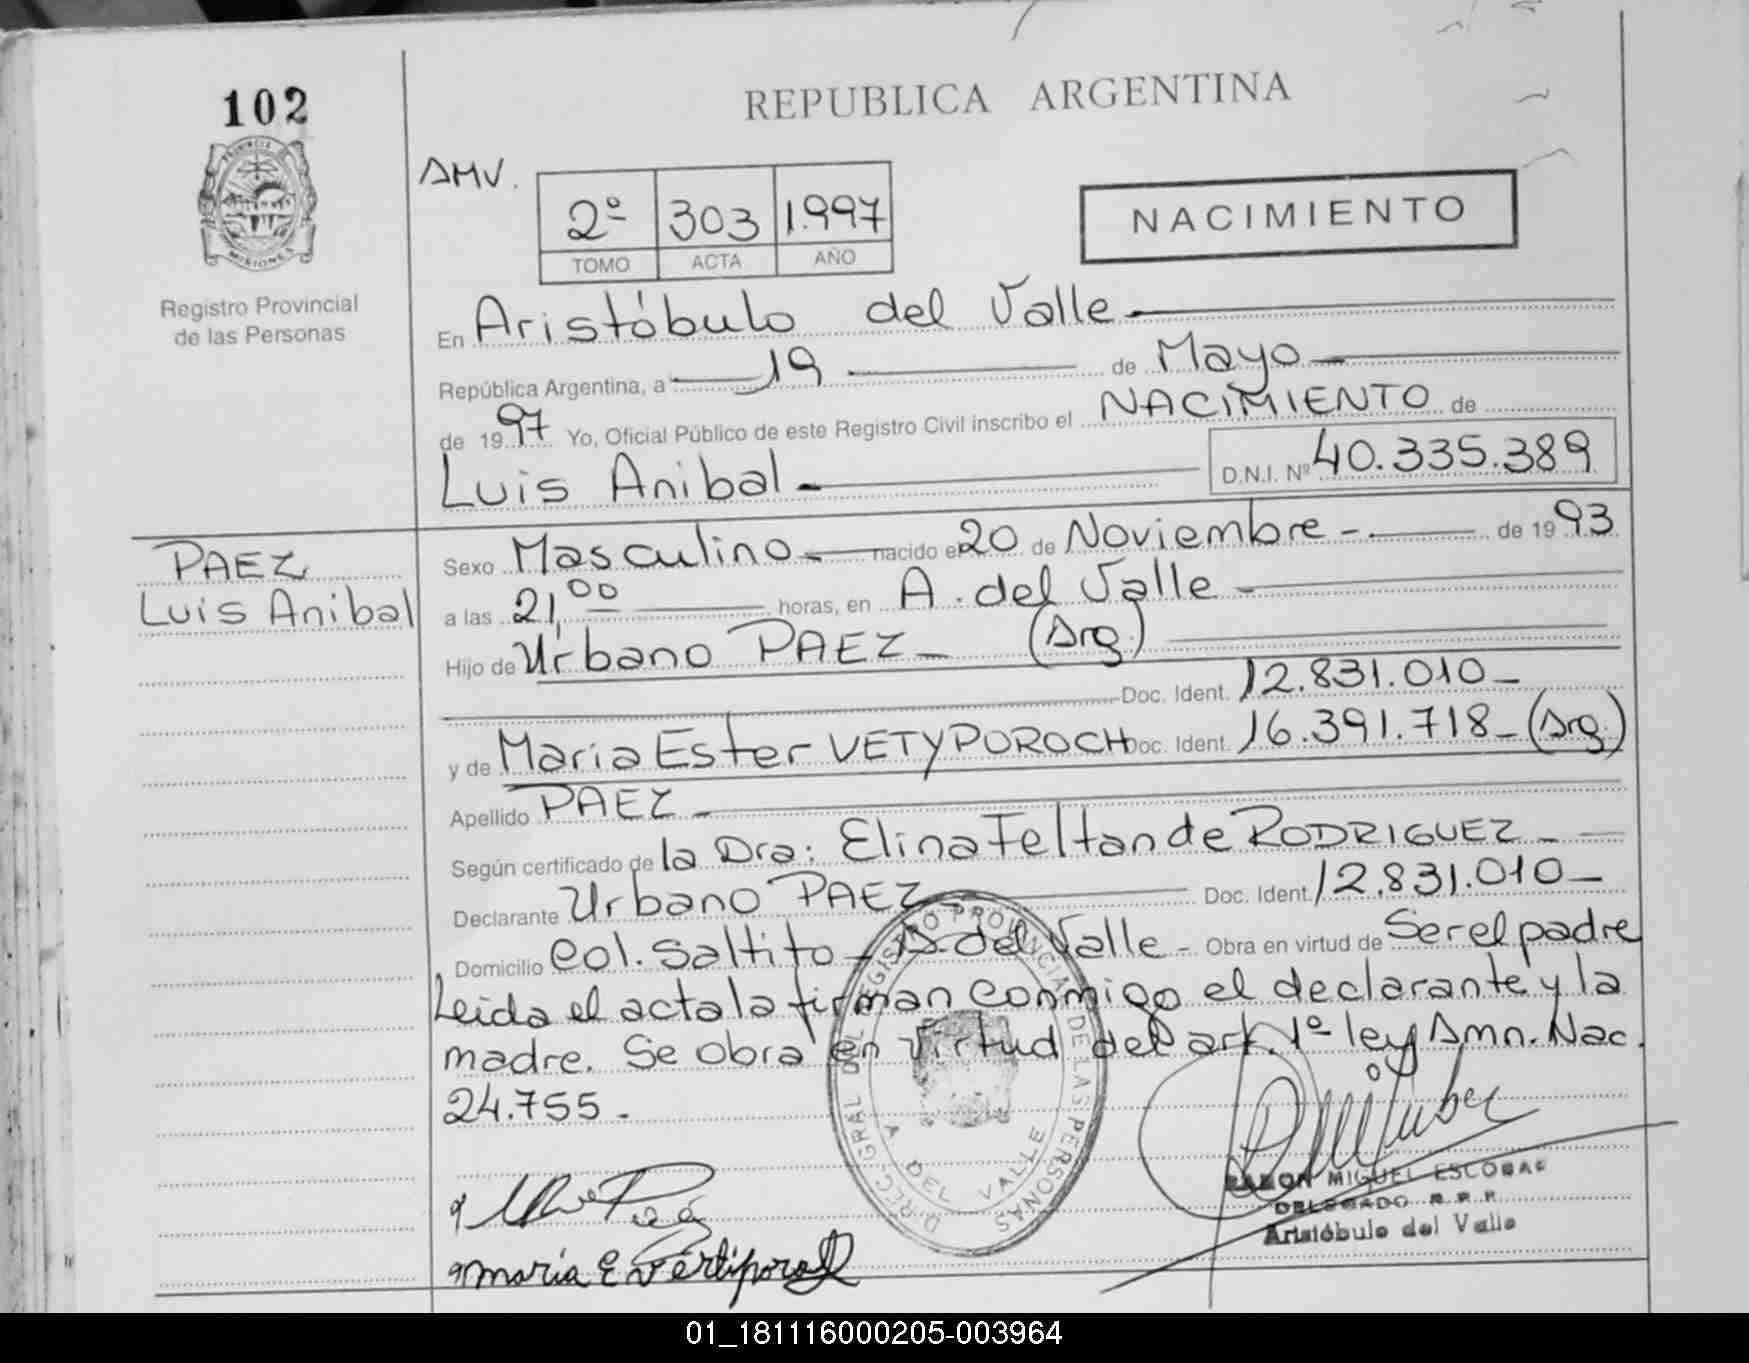 102
REPUBLICA ARGENTINA
PROVINCIA DE
MISIONES
Registro Provincial
de las Personas
AMV.
2º 303 1.997
TOMO ACTA AÑO
NACIMIENTO
En Aristóbulo del Valle
República Argentina, a 19 de Mayo
de 1997 Yo, Oficial Público de este Registro Civil inscribo el NACIMIENTO de
Luis Anibal D.N.I. Nº 40.335.389
PAEZ
Luis Anibal
Sexo Masculino nacido el 20 de Noviembre - de 1993
a las 21,00 horas, en A. del Valle
Hijo de Urbano PAEZ (Arg.)
Doc. Ident. 12.831.010
y de Maria Ester VETYPOROCH Doc. Ident. 16.391.718 (Arg.)
Apellido PAEZ
Según certificado de la Dra: Elina Feltan de RODRIGUEZ
Declarante Urbano PAEZ Doc. Ident. 12.831.010
Domicilio Col. Saltito - A. del Valle - Obra en virtud de Ser el padre
Leida el acta la firman conmigo el declarante y la
madre. Se obra en virtud del art. 1º ley Amn. Nac.
24.755.
DIREC. GRAL DEL REGISTRO PROVINCIAL DE LAS PERSONAS
A DEL VALLE
RAMON MIGUEL ESCOBAR
DELEGADO R. P. P.
Aristóbulo del Valle
maria E
01_181116000205-003964